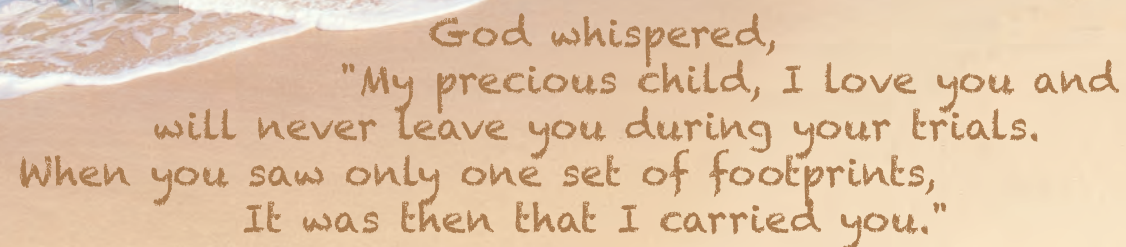 God whispered,
"My precious child, I love you and
will never leave you during your trials.
When you saw only one set of footprints,
It was then that I carried you."